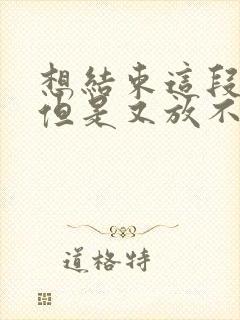 想結束這段
但是又放不
道格特